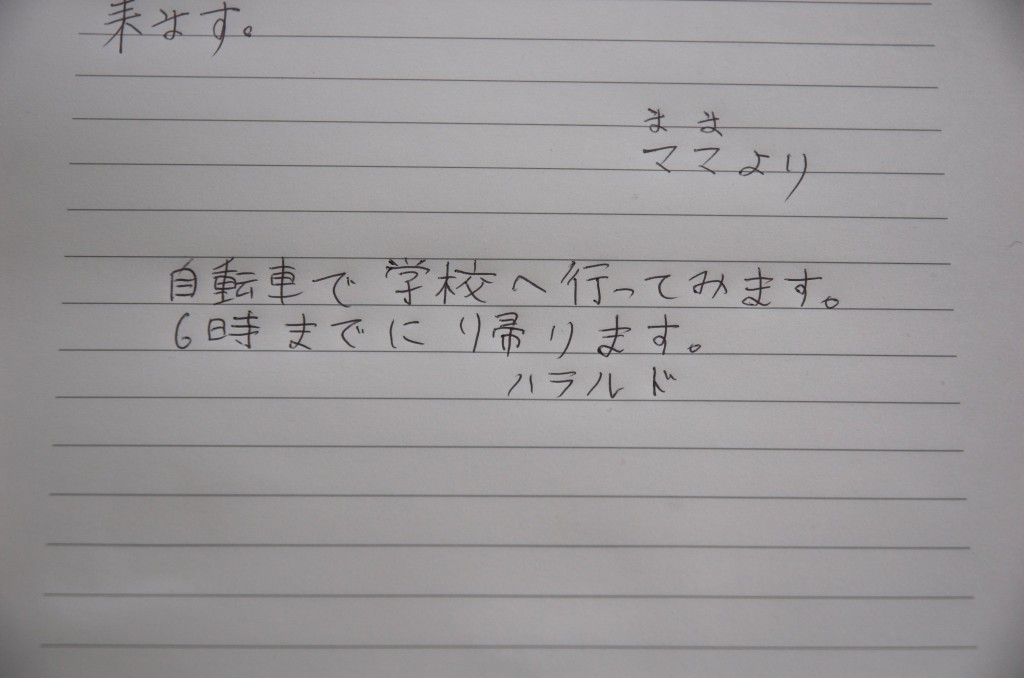 来ます。
まま
ママより
自転車で学校へ行ってみます。
6時までにり帰ります。
ハラルド